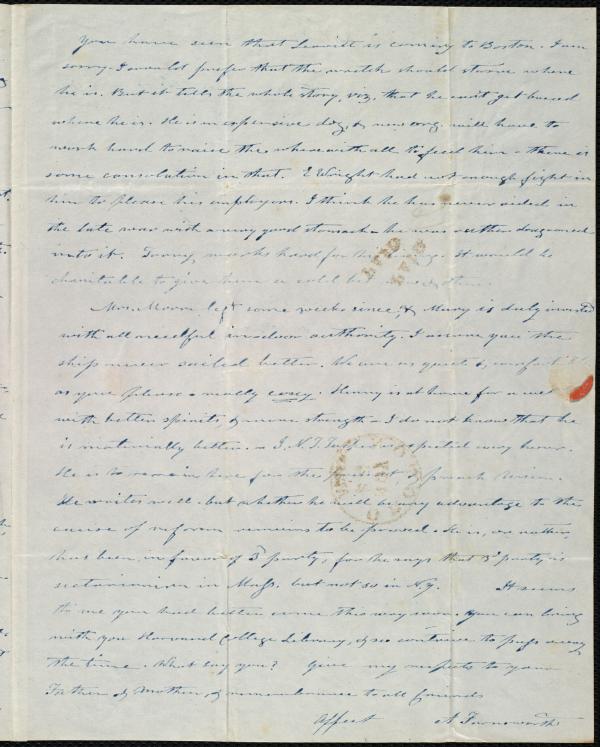 You have seen that Leavitt is coming to Boston. I am
sorry. I would prefer that the wretch should starve where
he is. But it tells the whole story, viz, that he can't get bread
where he is. He is an expensive dog, & new org. will have to
work hard to raise the wherewithall to feed him - there is
some consolation in that. E Wright had not enough fight in
him to please his employers. I think he has never aided in
the late war with a very good stomach - he was rather dragooned
into it. works hard for his It would be
charitable to give him a
Mrs. Moore left some weeks since, & Mary is duly invested
with all needful indoor authority. I assure you the
ship never sailed better. We are as quiet & comfortable
as you please - really cosey. Henry is at home for a week
with better spirits & more strength - I do not know that he
is materially better. - J. N. T. Tucker is expected every hour.
He is to remain here for the present & preach Union.
He writes well - but whether he will be any advantage to the
cause of reform remains to be proved. He is, or rather
has been, in favor of 3d party, for he says that 3d party is
sectarianism in Mass. but not so in N.Y. It seems
to me you had better come this way soon. You can bring
with you Harvard College Library, & so contrive to pass away
the time. What say you? Give my respects to your
Father & Mother, & remembrance to all friends
Affect A Farnsworth
PAID
PAID